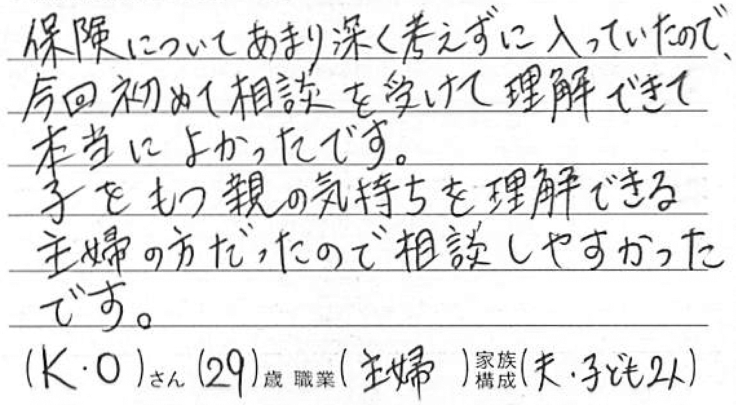 保険についてあまり深く考えずに入っていたので、
今回初めて相談を受けて理解できて
本当によかったです。
子をもつ親の気持ちを理解できる
主婦の方だったので相談しやすかった
です。
(K・O)さん(29)歳 職業(主婦)家族構成(夫・子ども2人)